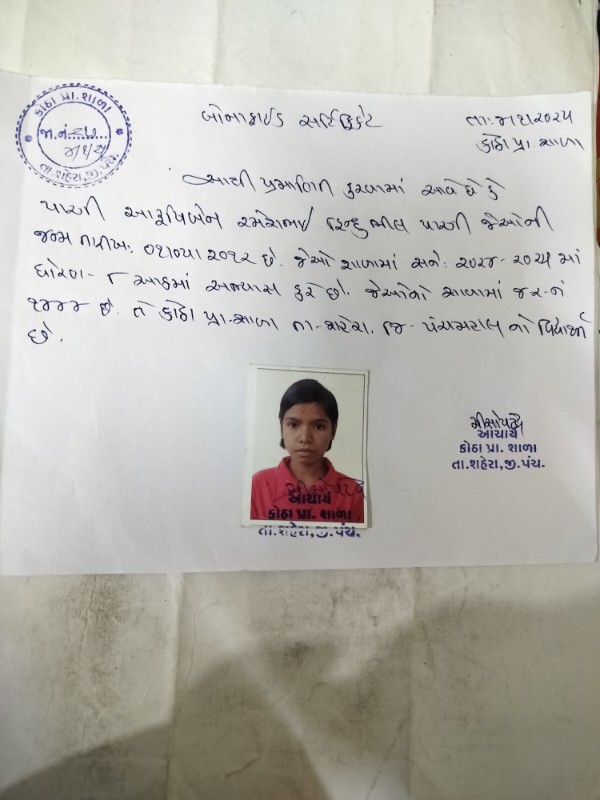 કોઠા પ્રા. શાળા
જા.નં.
તા.શહેરા,જી.પંચ.
બોનાફાઈડ સર્ટિફિકેટ
કોઠા પ્રા. શાળા
આથી પ્રમાણિત કરવામાં આવે છે કે
પારગી રમેશભાઈ હિન્દુ ભીલ પારગી જેઓની
જન્મ તારીખ: છે. જેઓ શાળામાં સને: ૨૦૨૪- ૨૦૨૫ માં
ધોરણ - ૮ આઠમાં અભ્યાસ કરે છે. જેઓનો શાળામાં જ.ર-નં
૧૪૪૪ છે. તે કોઠા પ્રા.શાળા તા-શહેરા. જિ - પંચમહાલ નો
છે.
આચાર્ય
કોઠા પ્રા. શાળા
તા.શહેરા,જી.પંચ.
આચાર્ય
કોઠા પ્રા. શાળા
તા.શહેરા,જી.પંચ.